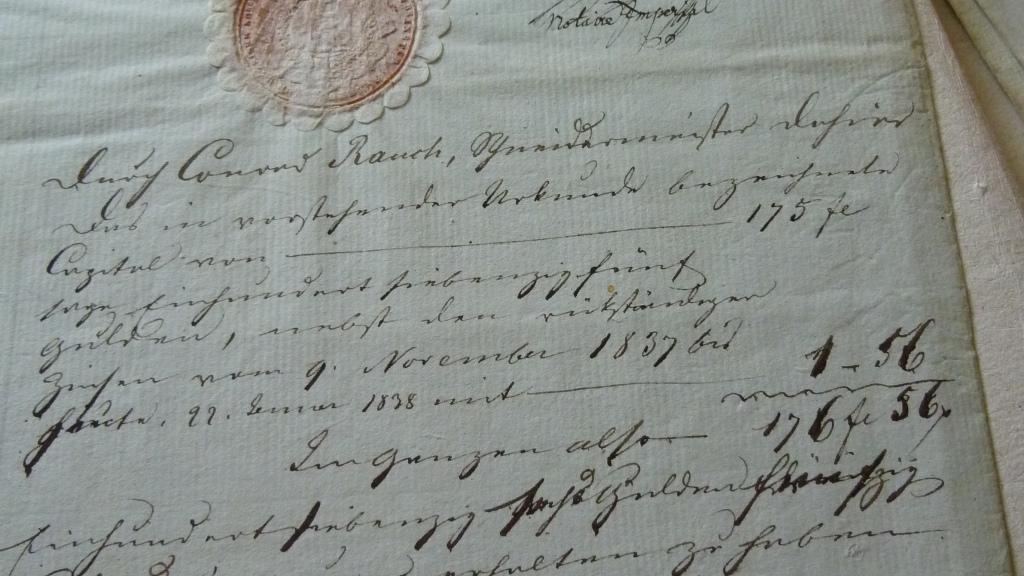 Notaire Imperial
Durch Conrad Rauch, Schneidermeister dahier
das in vorstehender Urkunde bezeichnete
Capital von 175 fl
sage Einhundert siebenzig fünf
Gulden, nebst den rükständigen
Zinsen vom 9. November 1837 bis
heute, 22. Januar 1838 mit 1 - 56
Im ganzen also 176 fl 56 x
Einhundert siebenzig sechs Gulden fünfzig
erhalten zu haben